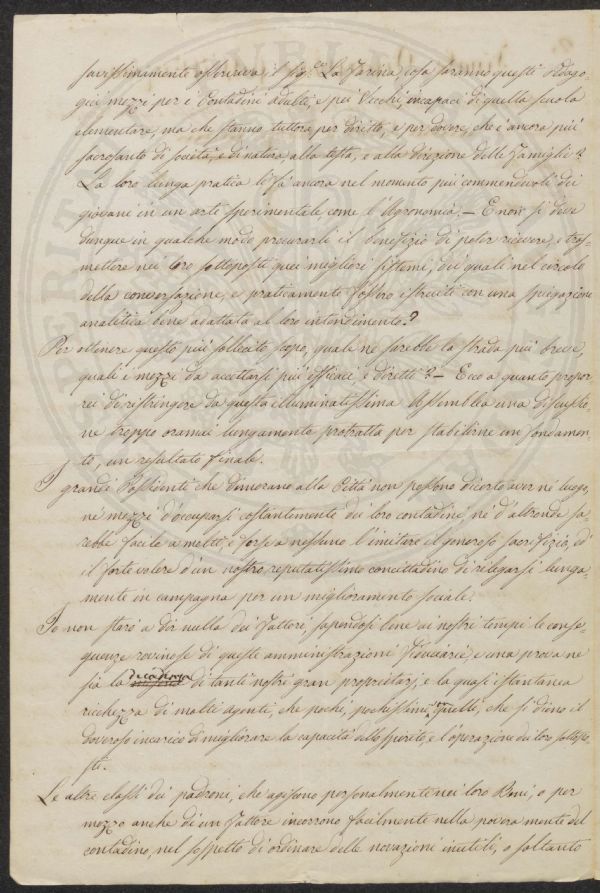 savissimamente osservava il Sig.re La Farina, cosa saranno questi Pedago-
gici mezzi per i Contadini adulti, e pei Vecchi, incapaci di quella scuola
elementare, ma che stanno tuttora per diritto, e per dovere, che è ancora più
sacrosanto di società, e di natura alla testa, e alla direzione delle Famiglie?
La loro lunga pratica li fà ancora nel momento più commendevoli dei
giovani in un arte sperimentale come l'Agronomia. — E non si deve
dunque in qualche modo procurarli il benefizio di poter ricevere, e tras-
mettere nei loro sottoposti quei migliori sistemi, dei quali nel circolo
della conversazione, e praticamente fossero istruiti con una spiegazione
analitica bene adattata al loro intendimento?
Per ottenere questo più sollecito scopo, quale ne sarebbe la strada più breve,
quali i mezzi da accettarsi più efficaci e diretti? — Ecco a quanto propor-
rei di ristringere da questa illuminatissima Assemblea una discussio-
ne troppo oramai lungamente protratta per stabilirne un fondamen-
to, un resultato finale.
I grandi Possidenti che dimorano alla Città non possono di certo aver nè luogo,
nè mezzi d'occuparsi costantemente dei loro contadini, nè d'altronde sa-
rebbe facile a molti, e forse a nessuno l'imitare il generoso sacrifizio, ed
il forte volere d'un nostro reputatissimo concittadino di relegarsi lunga-
mente in campagna per un miglioramento sociale.
Io non starò a dir nulla dei Fattori, sapendosi bene ai nostri tempi le conse-
guenze rovinose di queste amministrazioni Fiduciarie, e una prova ne
sia la decadenza di tanti nostri gran proprietarj, e la quasi istantanea
ricchezza di molti agenti, che pochi, pochissimi son quelli, che si dieno il
doveroso incarico di migliorare la capacità dello spirito, e l'operazione dei loro sottopo-
sti.
Le altre classi dei padroni, che agiscono personalmente nei loro Beni, o per
mezzo anche di un Fattore incorrono facilmente nella povera mente del
contadino, nel sospetto di ordinare delle novazioni inutili, o soltanto